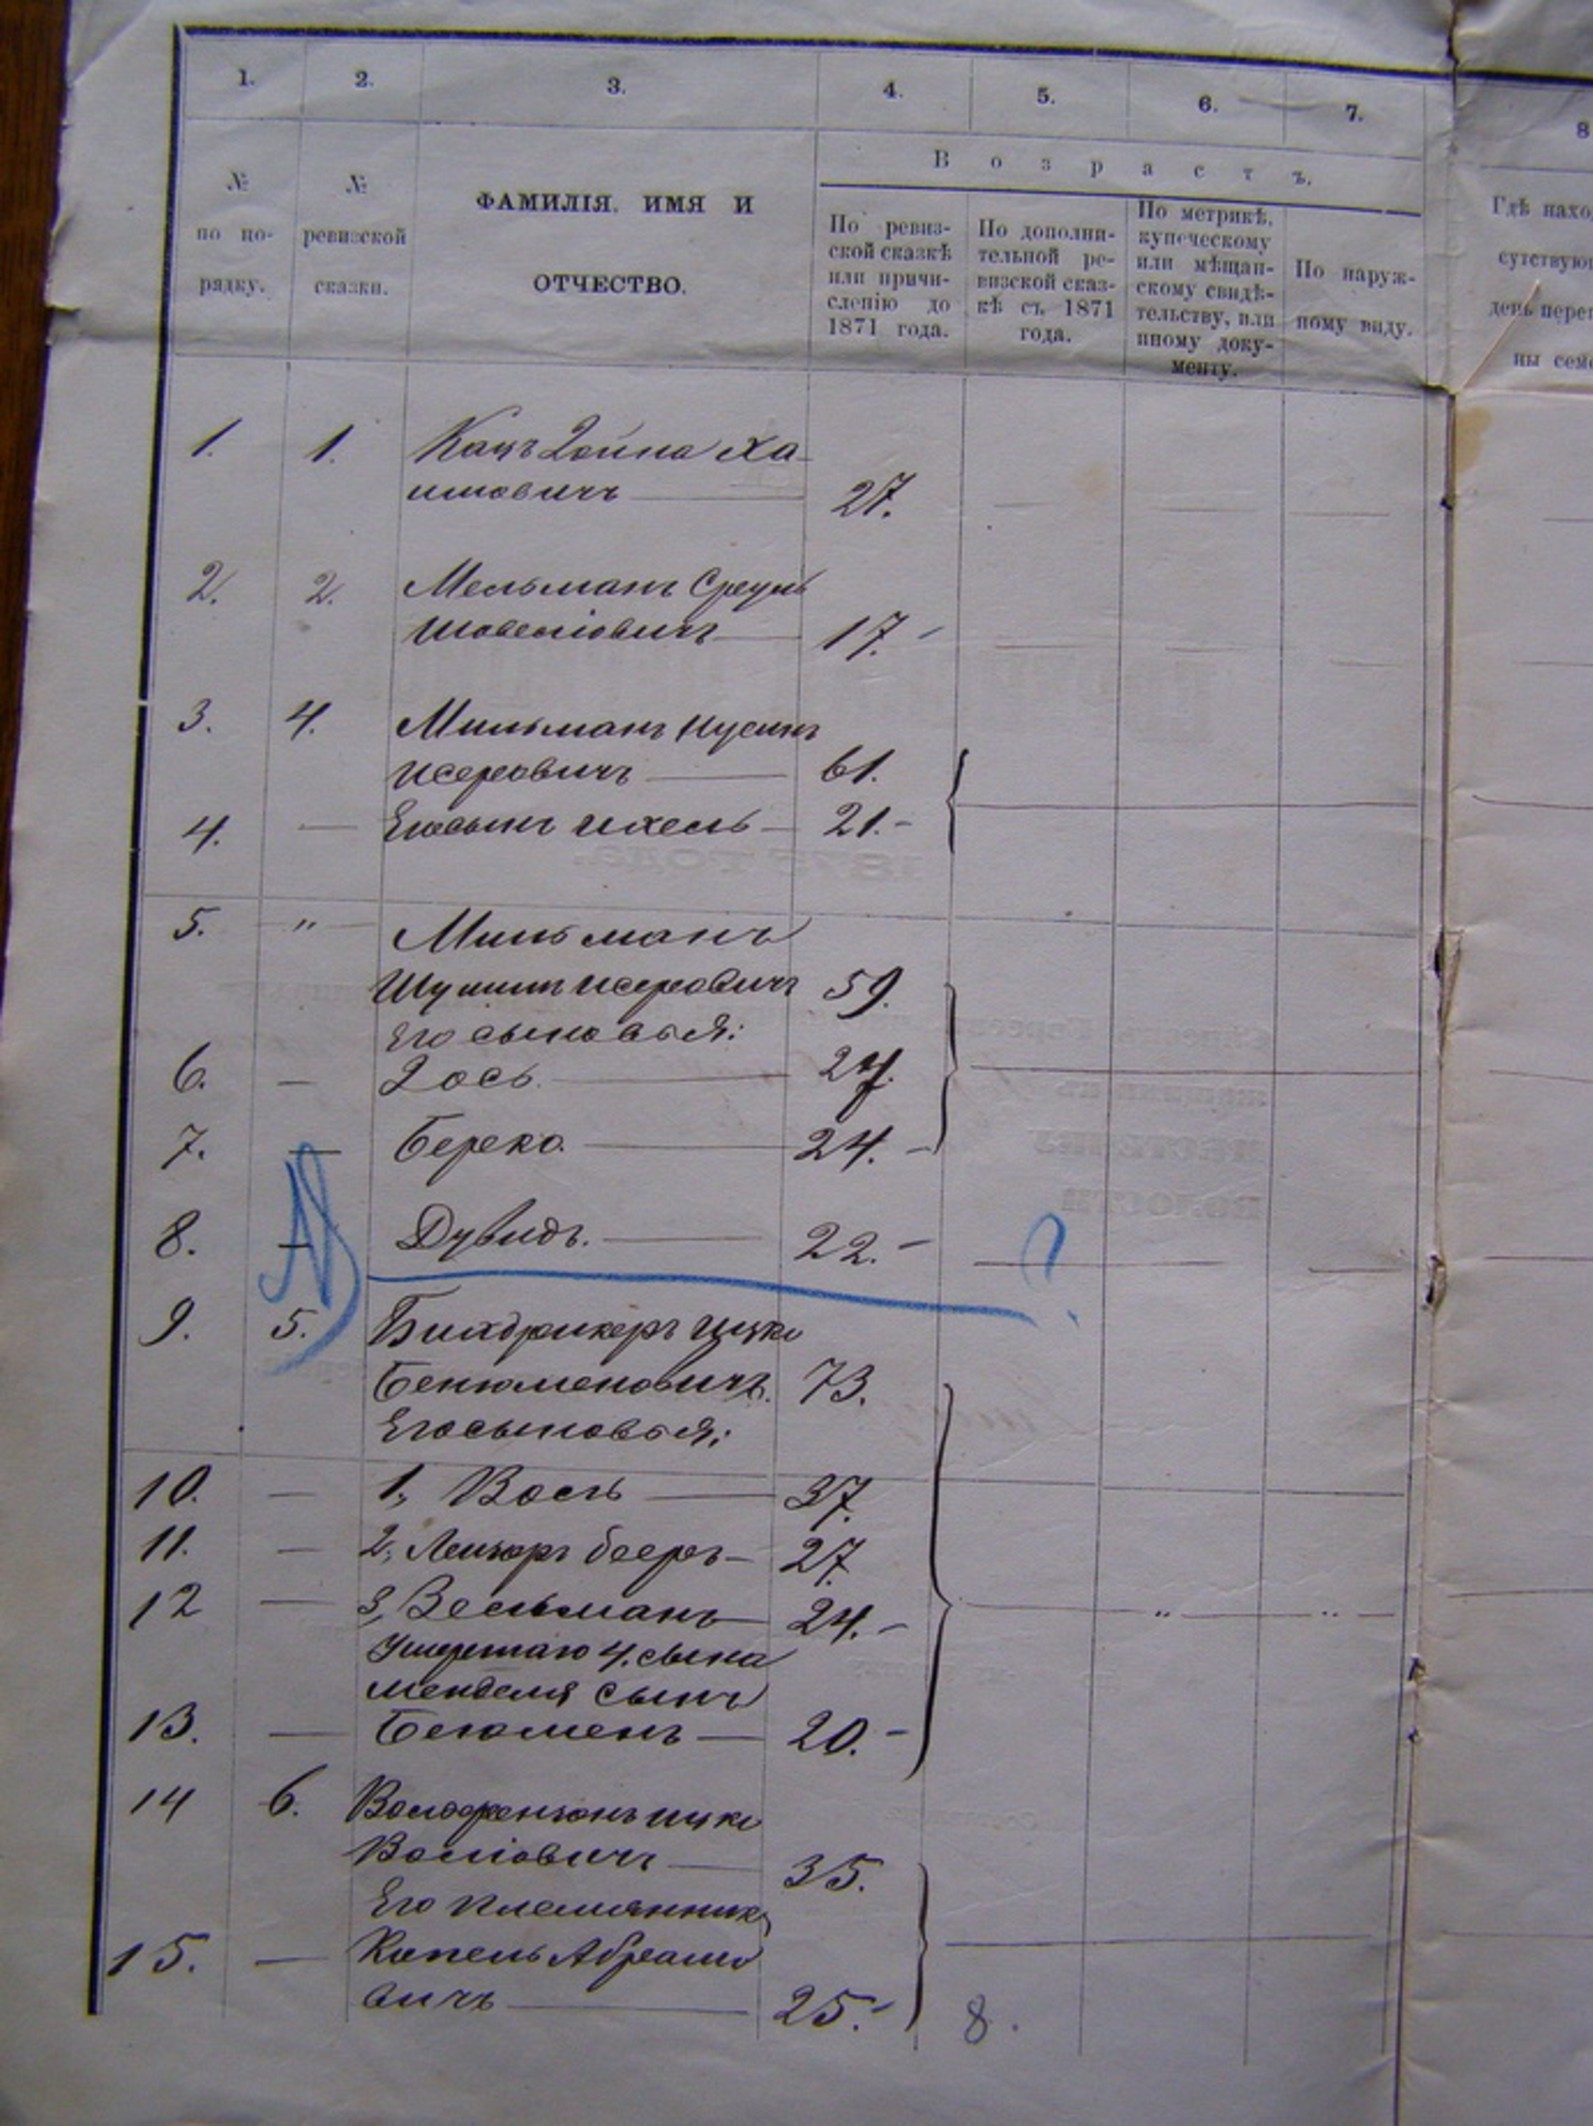 1. 2. 3. 4. 5. 6. 7. 8
№ по по-рядку.
№ ревизской сказки.
ФАМИЛІЯ, ИМЯ И
ОТЧЕСТВО.
Возрастъ.
По ревиз-
ской сказкѣ
или причи-
сленію до
1871 года.
По дополни-
тельной ре-
визской сказ-
кѣ съ 1871
года.
По метрикѣ,
купеческому
или мѣщан-
скому свидѣ-
тельству, или
иному доку-
менту.
По наруж-
ному виду.
Гдѣ нахо
сутствую
день переп
ны сем
1. 1. Кацъ Іойна Ха-
имовичъ 27.
2. 2. Мельманъ Сруль
17.
3. 4. Мильманъ Нусинъ
Исеровичъ 61.
4. — Его сынъ Ихель — 21.
5. " Мильманъ
Исеровичъ 59.
Его сыновья:
6. — Іось 27.
7. — Береко. 24.
8. — Дувидъ. 22.
?
9. 5. Ицко
Бенюменовичъ. 73.
Его сыновья:
10. — 1, 37.
11. — 2, Лейзоръ Бееръ — 27.
12 — 3, Зельманъ 24.
Умершаго 4. сына
Менделя сынъ
13. — Бенюменъ — 20.
14 6. Ицко
35.
Его племянникъ
15. — Копель Абрамо
вичъ 25.
8.